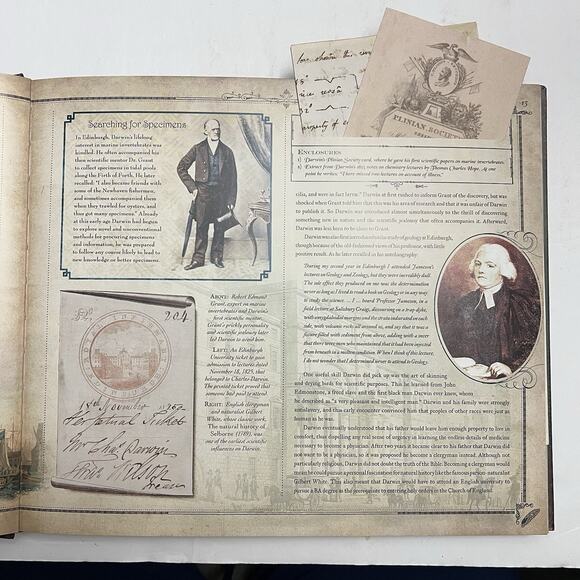 fore sheain this
PLINIAN SOCIETY
property of
15
Searching for Specimens
In Edinburgh, Darwin's lifelong
interest in marine invertebrates was
kindled. He often accompanied his
then scientific mentor Dr. Grant
to collect specimens in tidal pools
along the Firth of Forth. He later
recalled: "I also became friends with
some of the Newhaven fishermen,
and sometimes accompanied them
when they trawled for oysters, and
thus got many specimens." Already
at this early age Darwin had begun
to explore novel and unconventional
methods for procuring specimens
and information, he was prepared
to follow any course likely to lead to
new knowledge or better specimens.
204
18 November
Perpetual Ticket
Mr Chas Darwin
Above: Robert Edmund
Grant, expert on marine
invertebrates and Darwin's
first scientific mentor.
Grant's prickly personality
and scientific jealousy later
led Darwin to avoid him.
Left: An Edinburgh
University ticket to gain
admission to lectures dated
November 18, 1825, that
belonged to Charles Darwin.
The printed card proved that
someone had paid to attend.
Right: English clergyman
and naturalist Gilbert
White, whose classic work,
The natural history of
Selborne (1789), was
one of the earliest scientific
influences on Darwin.
Enclosures
1) Darwin's Plinian Society card, where he gave his first scientific papers on marine invertebrates.
2) Extract from Darwin's 1825 notes on chemistry lectures by Thomas Charles Hope. At one
point he writes: "I have missed two lectures on account of illness."
cilia, and were in fact larvæ." Darwin at first rushed to inform Grant of the discovery, but was
shocked when Grant told him that this was his area of research and that it was unfair of Darwin
to publish it. So Darwin was introduced almost simultaneously to the thrill of discovering
something new in nature and the scientific jealousy that often accompanies it. Afterward,
Darwin was less keen to be close to Grant.
Darwin was also first introduced to the study of geology at Edinburgh,
though because of the old-fashioned views of his professor, with little
positive result. As he later recalled in his autobiography:
During my second year in Edinburgh I attended Jameson's
lectures on Geology and Zoology, but they were incredibly dull.
The sole effect they produced on me was the determination
never as long as I lived to read a book on Geology or in any way
to study the science. ... I ... heard Professor Jameson, in a
field lecture at Salisbury Craigs, discoursing on a trap-dyke,
with amygdaloidal margins and the strata indurated on each
side, with volcanic rocks all around us, and say that it was a
fissure filled with sediment from above, adding with a sneer
that there were men who maintained that it had been injected
from beneath in a molten condition. When I think of this lecture,
I do not wonder that I determined never to attend to Geology.
One useful skill Darwin did pick up was the art of skinning
and drying birds for scientific purposes. This he learned from John
Edmonstone, a freed slave and the first black man Darwin ever knew, whom
he described as, "a very pleasant and intelligent man." Darwin and his family were strongly
antislavery, and this early encounter convinced him that peoples of other races were just as
human as he was.
Darwin eventually understood that his father would leave him enough property to live in
comfort, thus dispelling any real sense of urgency in learning the endless details of medicine
necessary to become a physician. After two years it became clear to his father that Darwin did
not want to be a physician, so it was proposed he become a clergyman instead. Although not
particularly religious, Darwin did not doubt the truth of the Bible. Becoming a clergyman would
mean he could pursue a personal fascination for natural history like the famous parson-naturalist
Gilbert White. This also meant that Darwin would have to attend an English university to
pursue a BA degree as the prerequisite to entering holy orders in the Church of England.